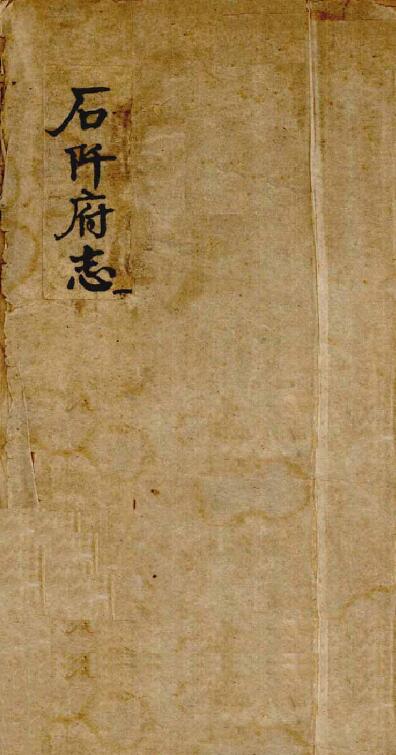 石阡府志一